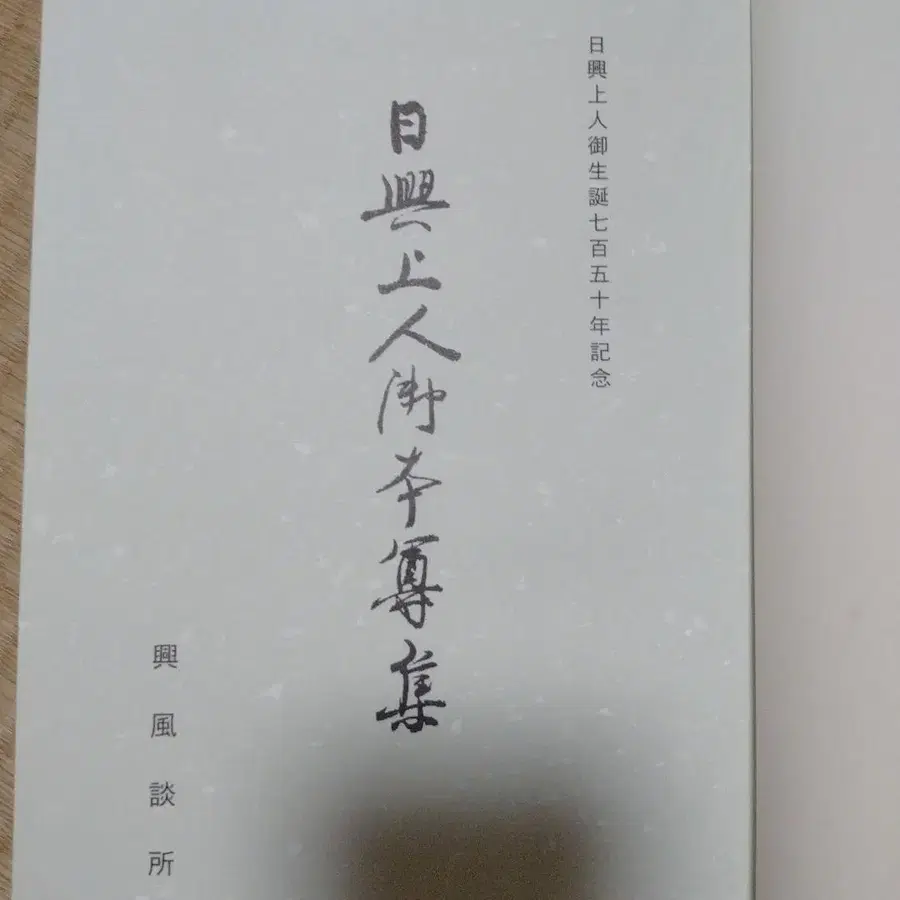 日興上人御生誕七百五十年記念
日興上人御本尊集
興風談所